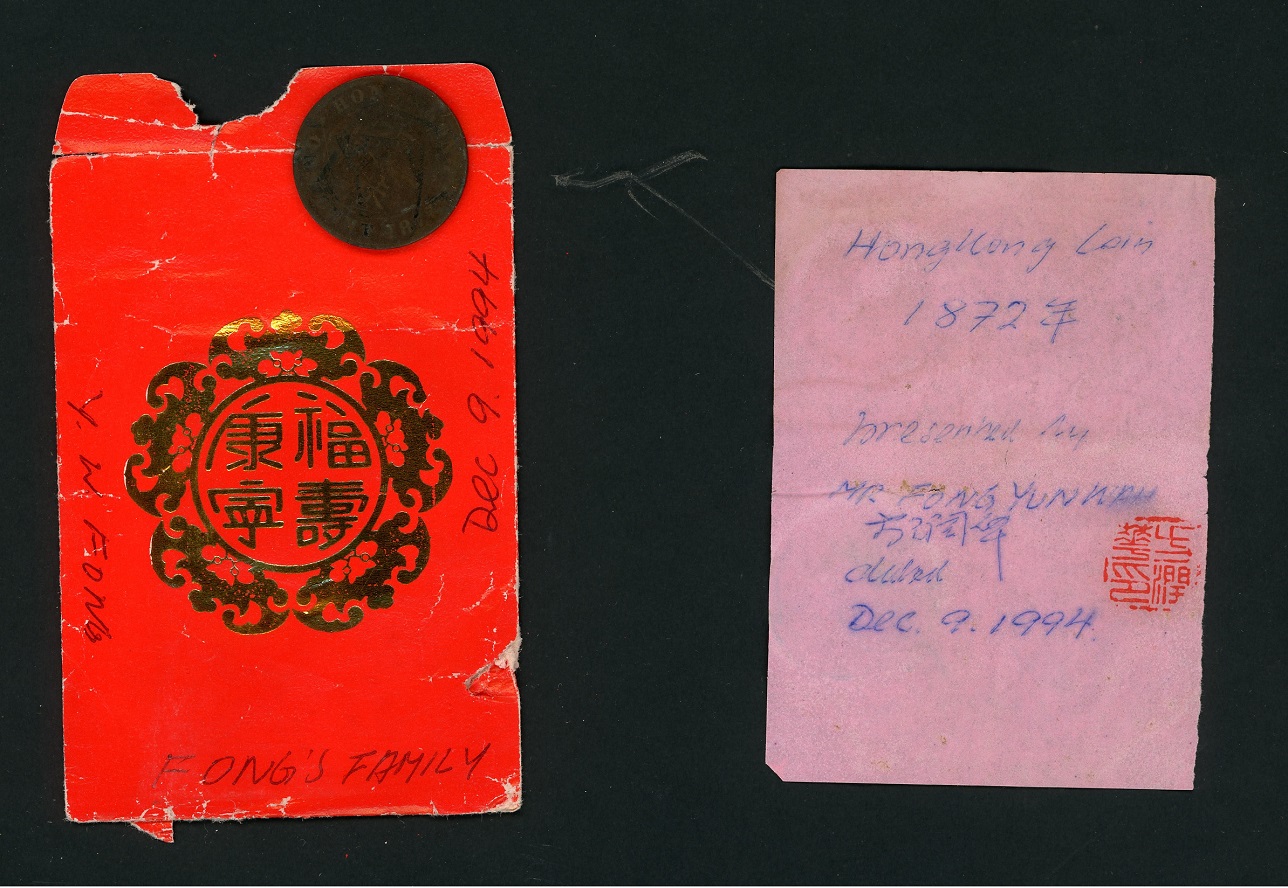 福壽
康寧
Y. W FONG
Dec 9. 1994
FONG'S FAMILY
HongKong Coin
1872年
presented by
MR. FONG YUN WAH
方潤華
dated
Dec. 9. 1994.